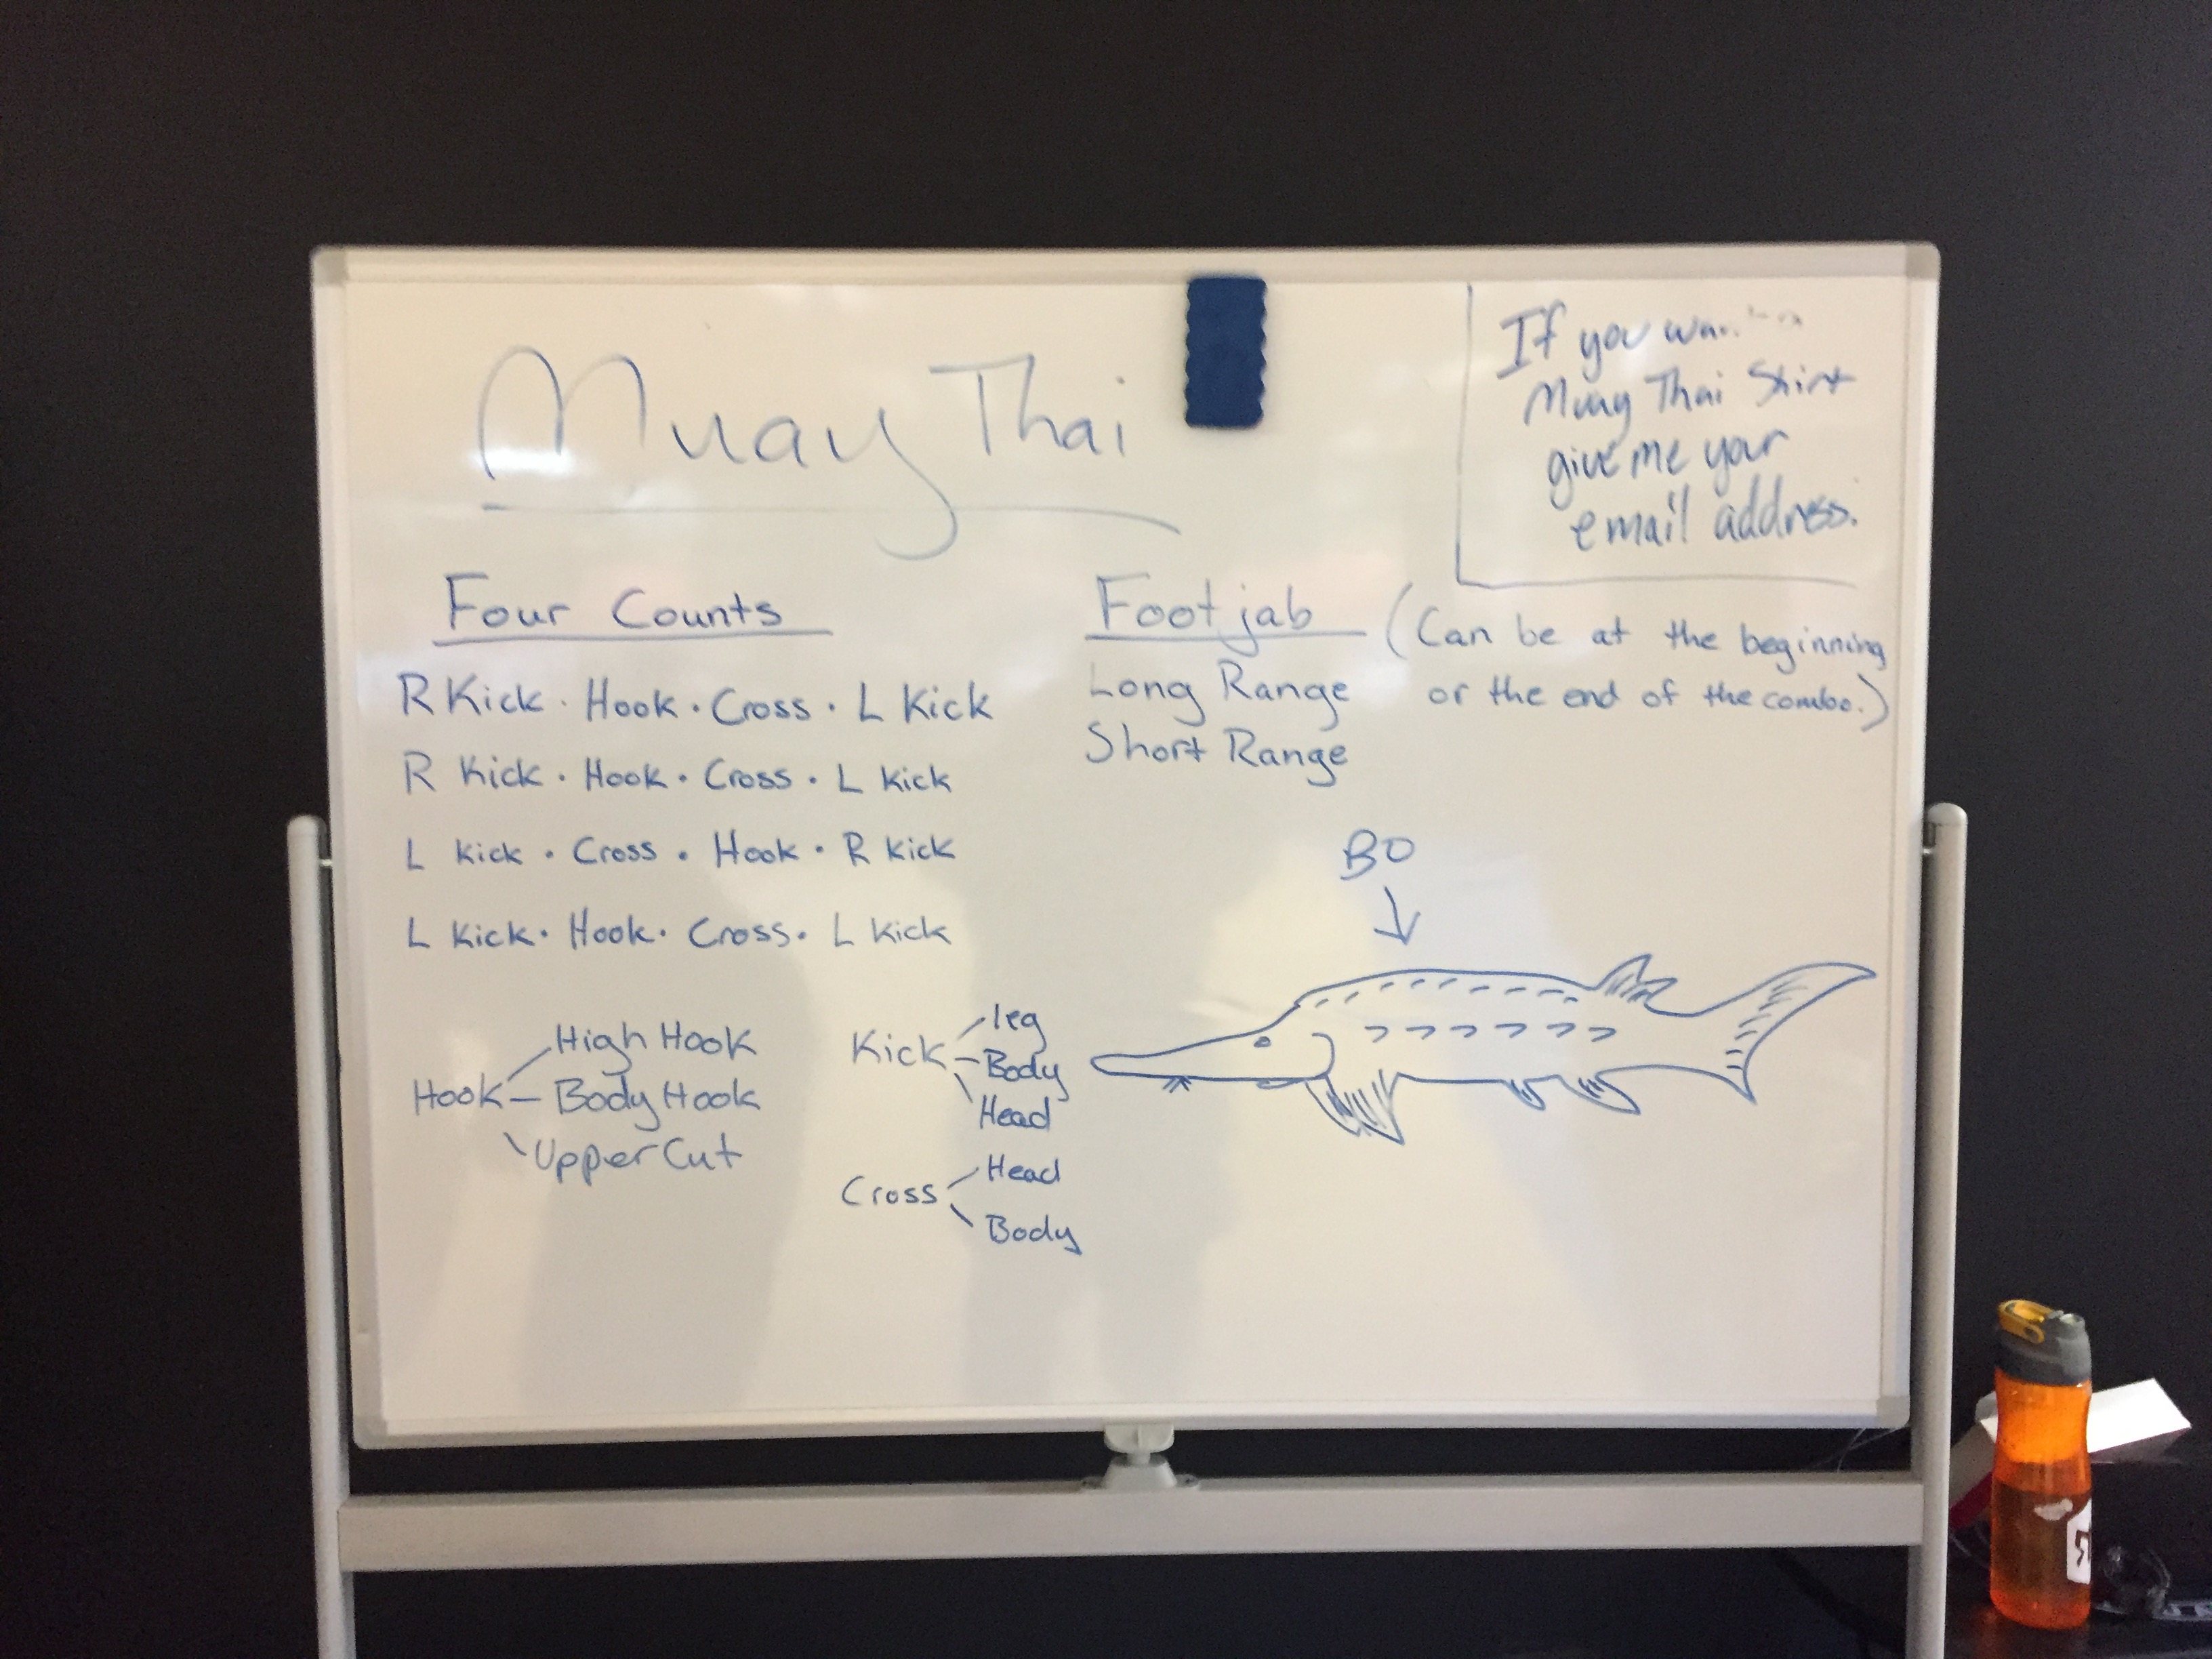 Muay Thai
If you
Muay Thai Shirt
give me your
email address.
Four Counts
R Kick · Hook · Cross · L Kick
R Kick · Hook · Cross · L Kick
L Kick · Cross · Hook · R Kick
L Kick · Hook · Cross · L Kick
Foot jab (Can be at the beginning
or the end of the combo.)
Long Range
Short Range
BO
Hook
High Hook
Body Hook
Upper Cut
Kick
leg
Body
Head
Cross
Head
Body